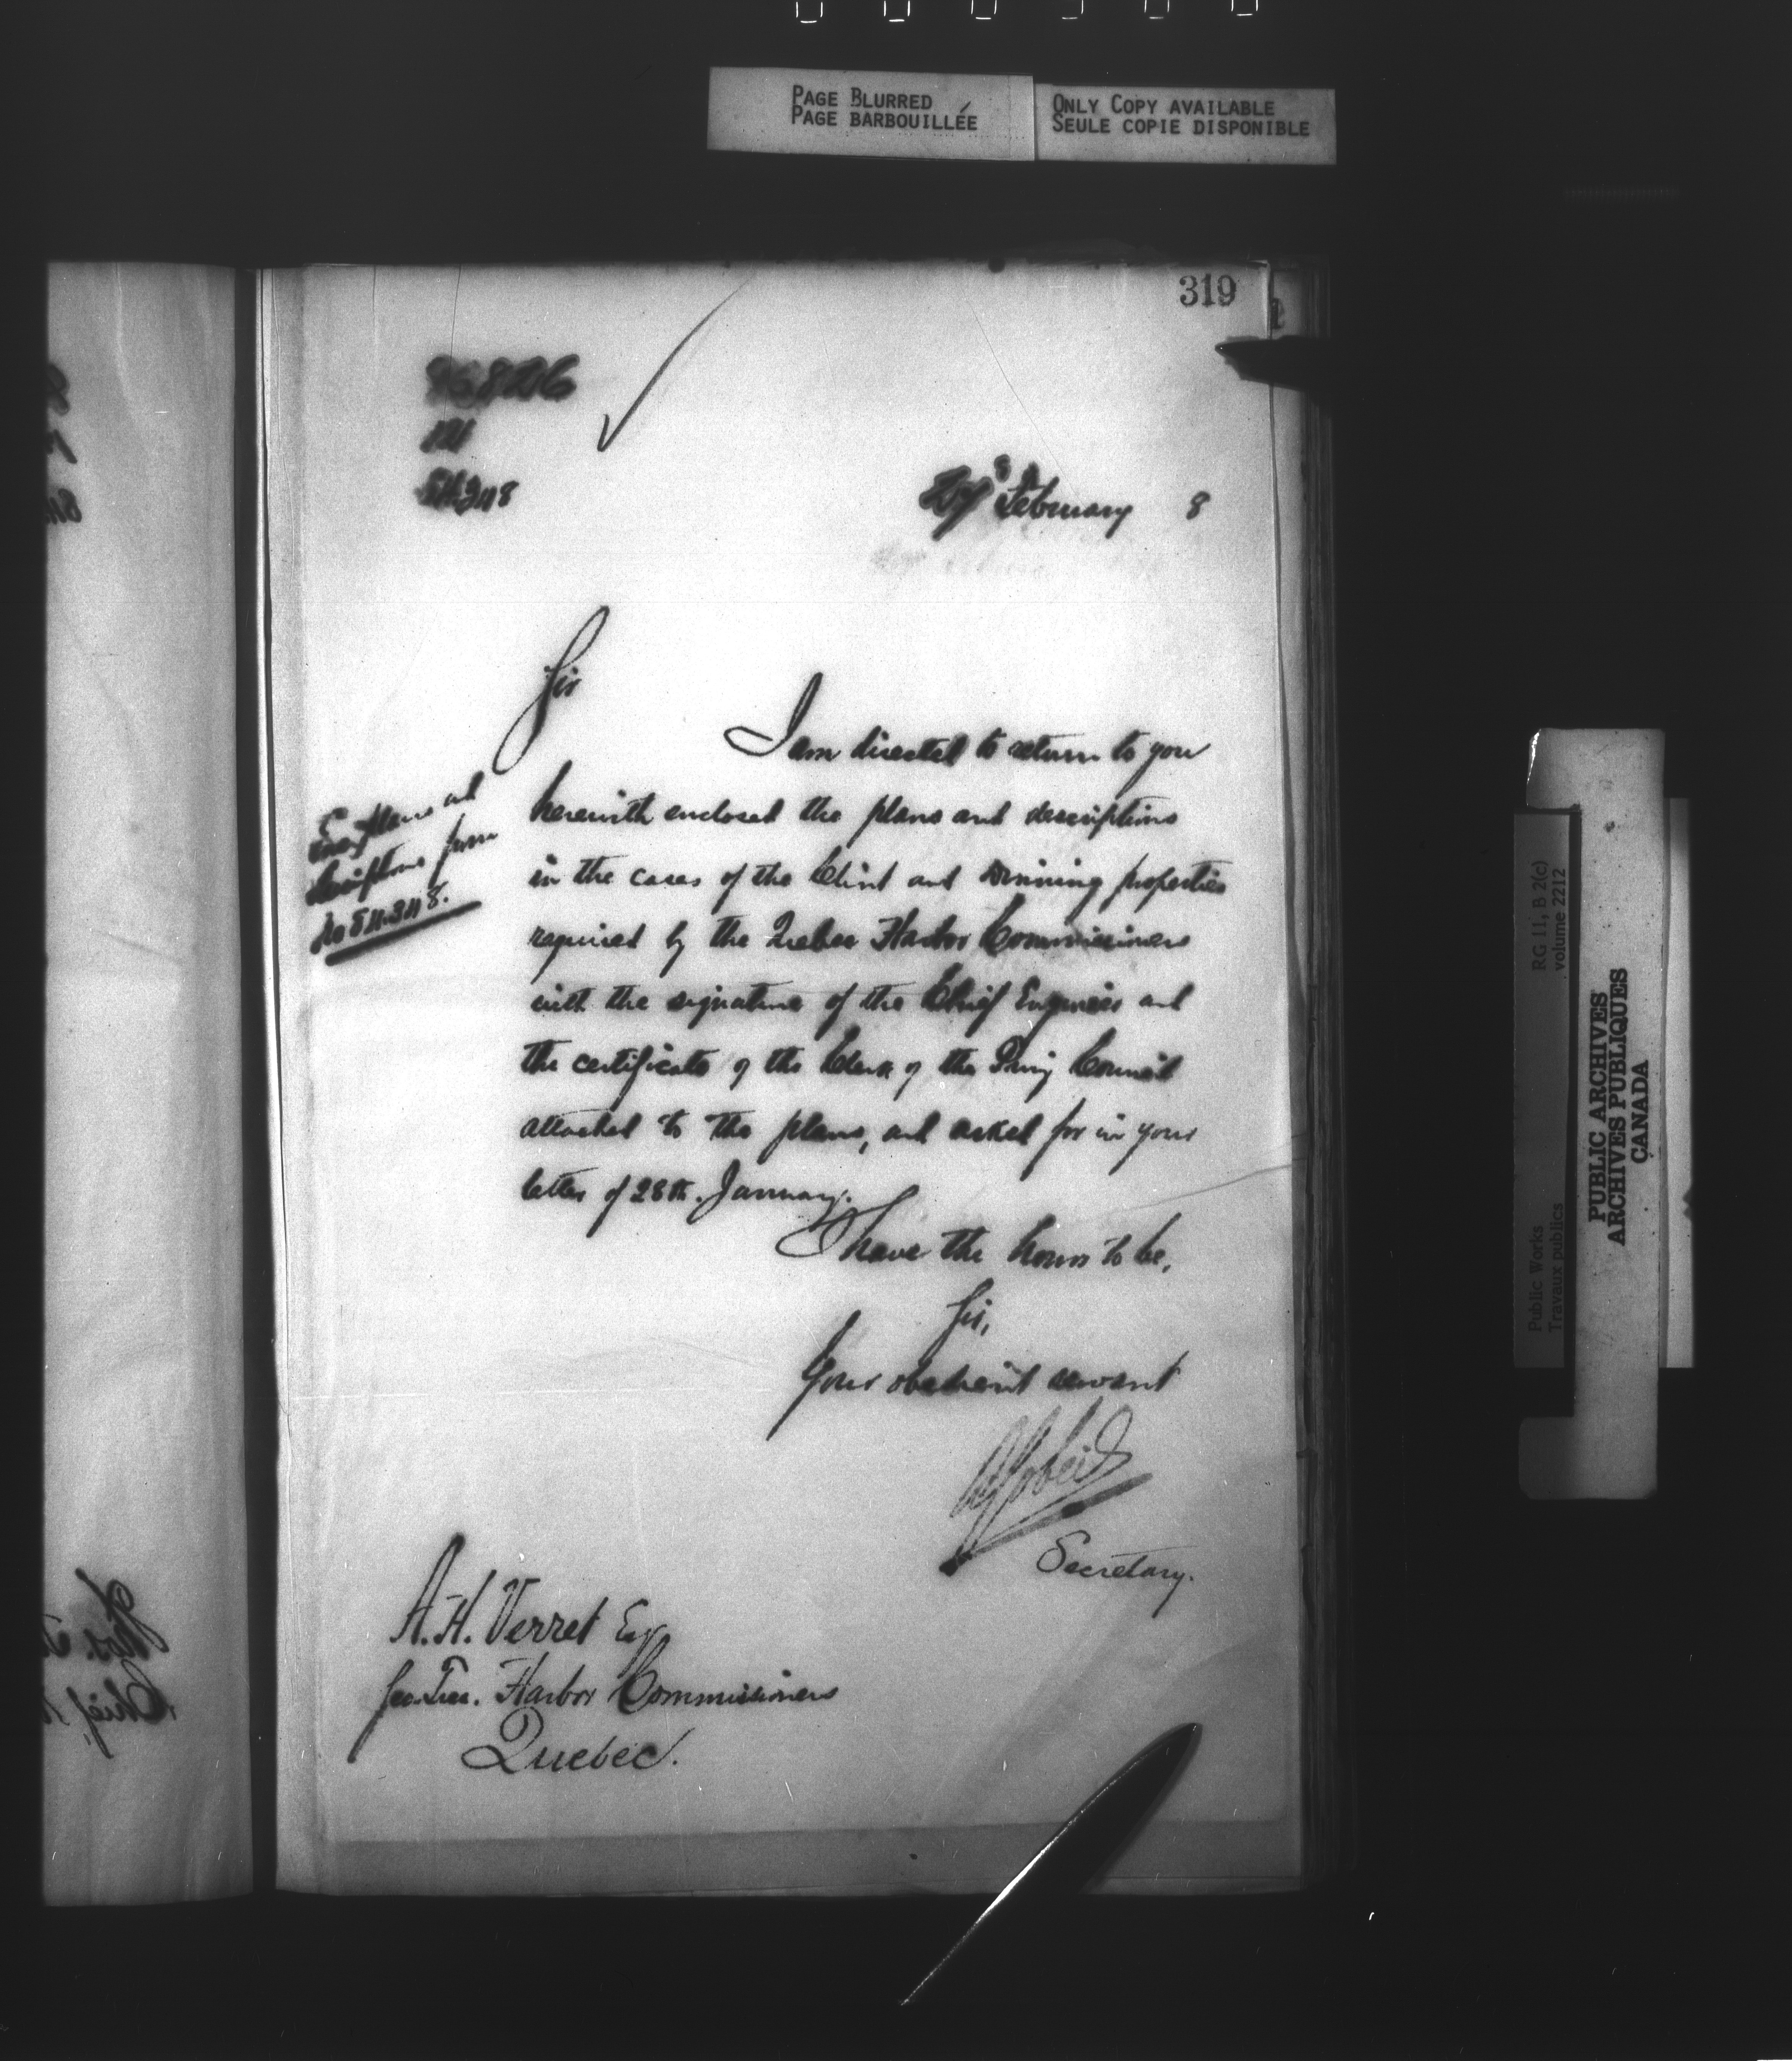 PAGE BLURRED
PAGE BARBOUILLÉE
ONLY COPY AVAILABLE
SEULE COPIE DISPONIBLE
319
54348
February 8
Sir
I am directed to return to you
herewith enclosed the plans and descriptions
in the cases of the Clint and Dinning properties
required by the Quebec Harbor Commissioners
with the signature of the Chief Engineer and
the certificate of the Clerk of the Privy Council
attached to the plans, and asked for in your
letter of 28th. January.
plans and
descriptions from
No 54348.
I have the honor to be,
Sir,
Your obedient servant
A Gobeil
Secretary.
A. H. Verret Esq
Sec. Trea. Harbor Commissioners
Quebec.
RG 11, B 2(c)
volume 2212
Public Works
Travaux publics
PUBLIC ARCHIVES
ARCHIVES PUBLIQUES
CANADA